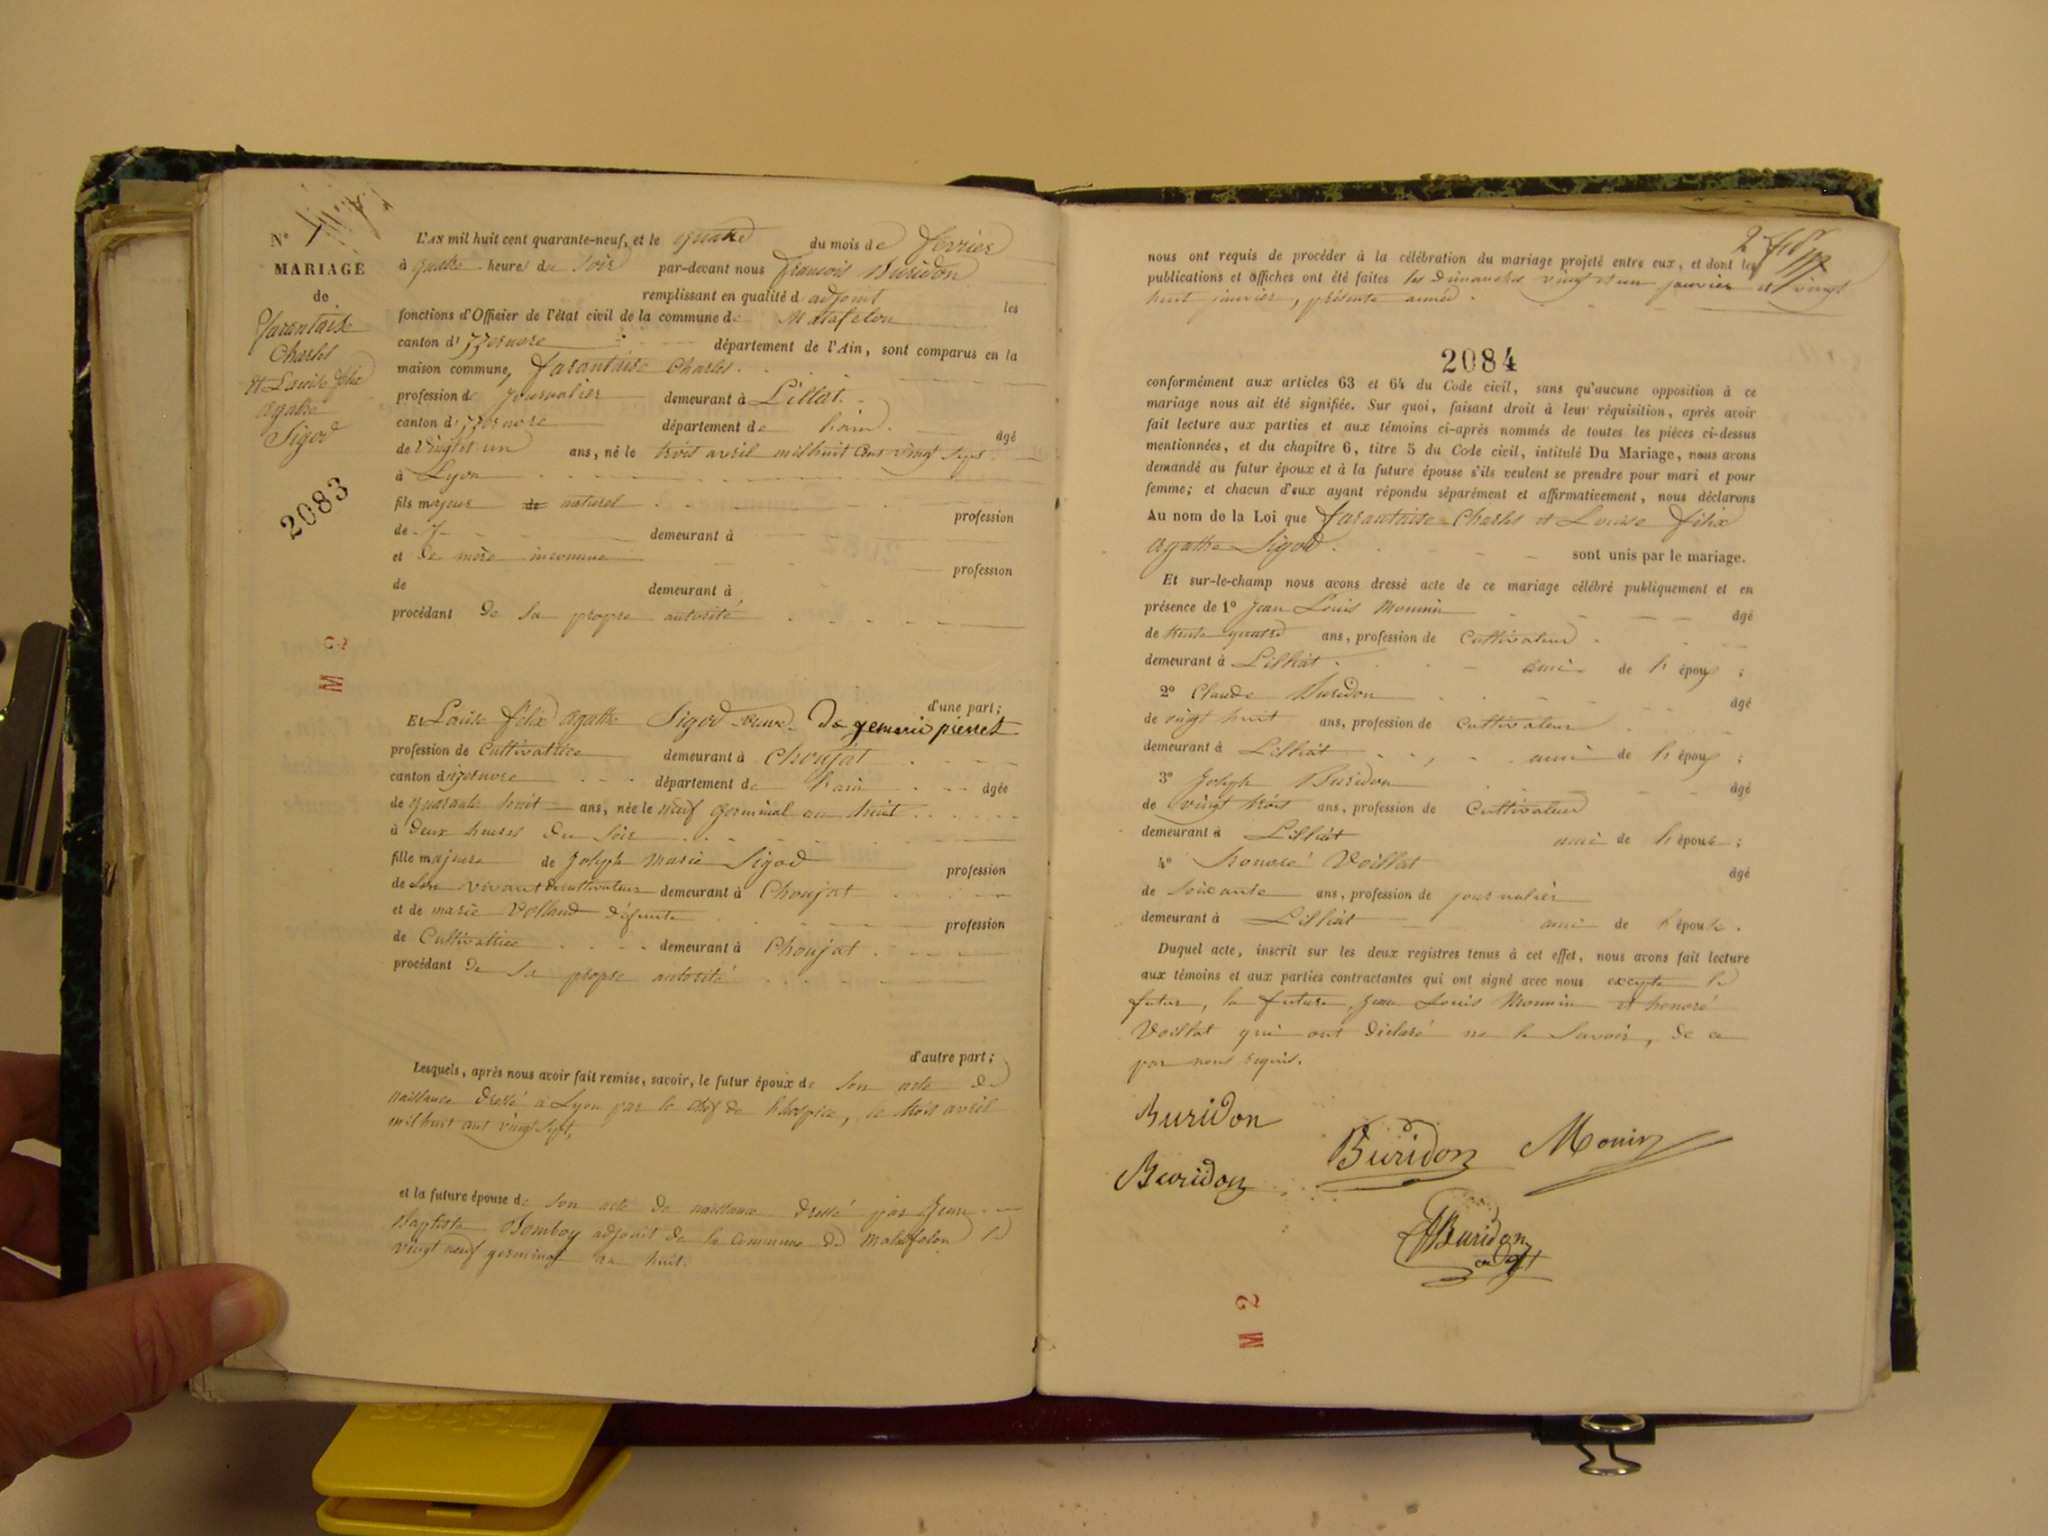 N° 1
MARIAGE
de
Tarantaise
Charles
et Louise félix
agathe
Sigod
2083
L'AN mil huit cent quarante-neuf, et le quatre du mois de février
à quatre heure du soir par-devant nous françois Buridon
remplissant en qualité d adjoint les
fonctions d'Officier de l'état civil de la commune de Matafelon
canton d'izernore département de l'Ain, sont comparus en la
maison commune, Tarantaise Charles
profession de journalier demeurant à Lillat
canton d'izernore département de l'ain
âgé
de vingt et un ans, né le trois avril mil huit cent vingt sept
à Lyon
fils majeur de naturel
profession
de demeurant à
et de mère inconnue
profession
de demeurant à
procédant de sa propre autorité
M 2
d'une part;
Et Louise félix agathe Sigod veuve De pierret
profession de Cultivatrice demeurant à Choujat
canton d'izernore département de l'ain âgée
de quarante huit ans, née le neuf germinal an huit
à deux heures du soir
fille majeure de Joseph marie Sigod
profession
de son vivant cultivateur demeurant à Choujat
et de marie Volland défunte
profession
de Cultivatrice demeurant à Choujat
procédant de sa propre autorité
d'autre part;
Lesquels, après nous avoir fait remise, savoir, le futur époux de son acte de
naissance dressé à Lyon par le chef de l'hospice, le trois avril
mil huit cent vingt sept,
et la future épouse de son acte de naissance dressé par Jean
Baptiste Bomboy adjoint de la commune de Matafelon le
vingt neuf germinal an huit.
2
nous ont requis de procéder à la célébration du mariage projeté entre eux, et dont les
publications et affiches ont été faites les dimanches vingt et un janvier et vingt
huit janvier, présente année.
2084
conformément aux articles 63 et 64 du Code civil, sans qu'aucune opposition à ce
mariage nous ait été signifiée. Sur quoi, faisant droit à leur réquisition, après avoir
fait lecture aux parties et aux témoins ci-après nommés de toutes les pièces ci-dessus
mentionnées, et du chapitre 6, titre 5 du Code civil, intitulé Du Mariage, nous avons
demandé au futur époux et à la future épouse s'ils veulent se prendre pour mari et pour
femme; et chacun d'eux ayant répondu séparément et affirmativement, nous déclarons
Au nom de la Loi que Tarantaise Charles et Louise félix
agathe Sigod sont unis par le mariage.
Et sur-le-champ nous avons dressé acte de ce mariage célébré publiquement et en
présence de 1° Jean Louis Monnin âgé
de trente quatre ans, profession de Cultivateur
demeurant à Lilliat ami de l'époux ;
2° Claude Buridon âgé
de vingt huit ans, profession de Cultivateur
demeurant à Lilliat ami de l'époux ;
3° Joseph Buridon âgé
de vingt trois ans, profession de Cultivateur
demeurant à Lilliat ami de l'épouse ;
4° honoré Voillat âgé
de soixante ans, profession de journalier
demeurant à Lilliat ami de l'épouse.
Duquel acte, inscrit sur les deux registres tenus à cet effet, nous avons fait lecture
aux témoins et aux parties contractantes qui ont signé avec nous excepté le
futur, la future, Jean Louis Monnin et honoré
Voillat qui ont déclaré ne le savoir, de ce
par nous requis.
Buridon
Buridon Monin
Buridon
Buridon
adjt
M 2